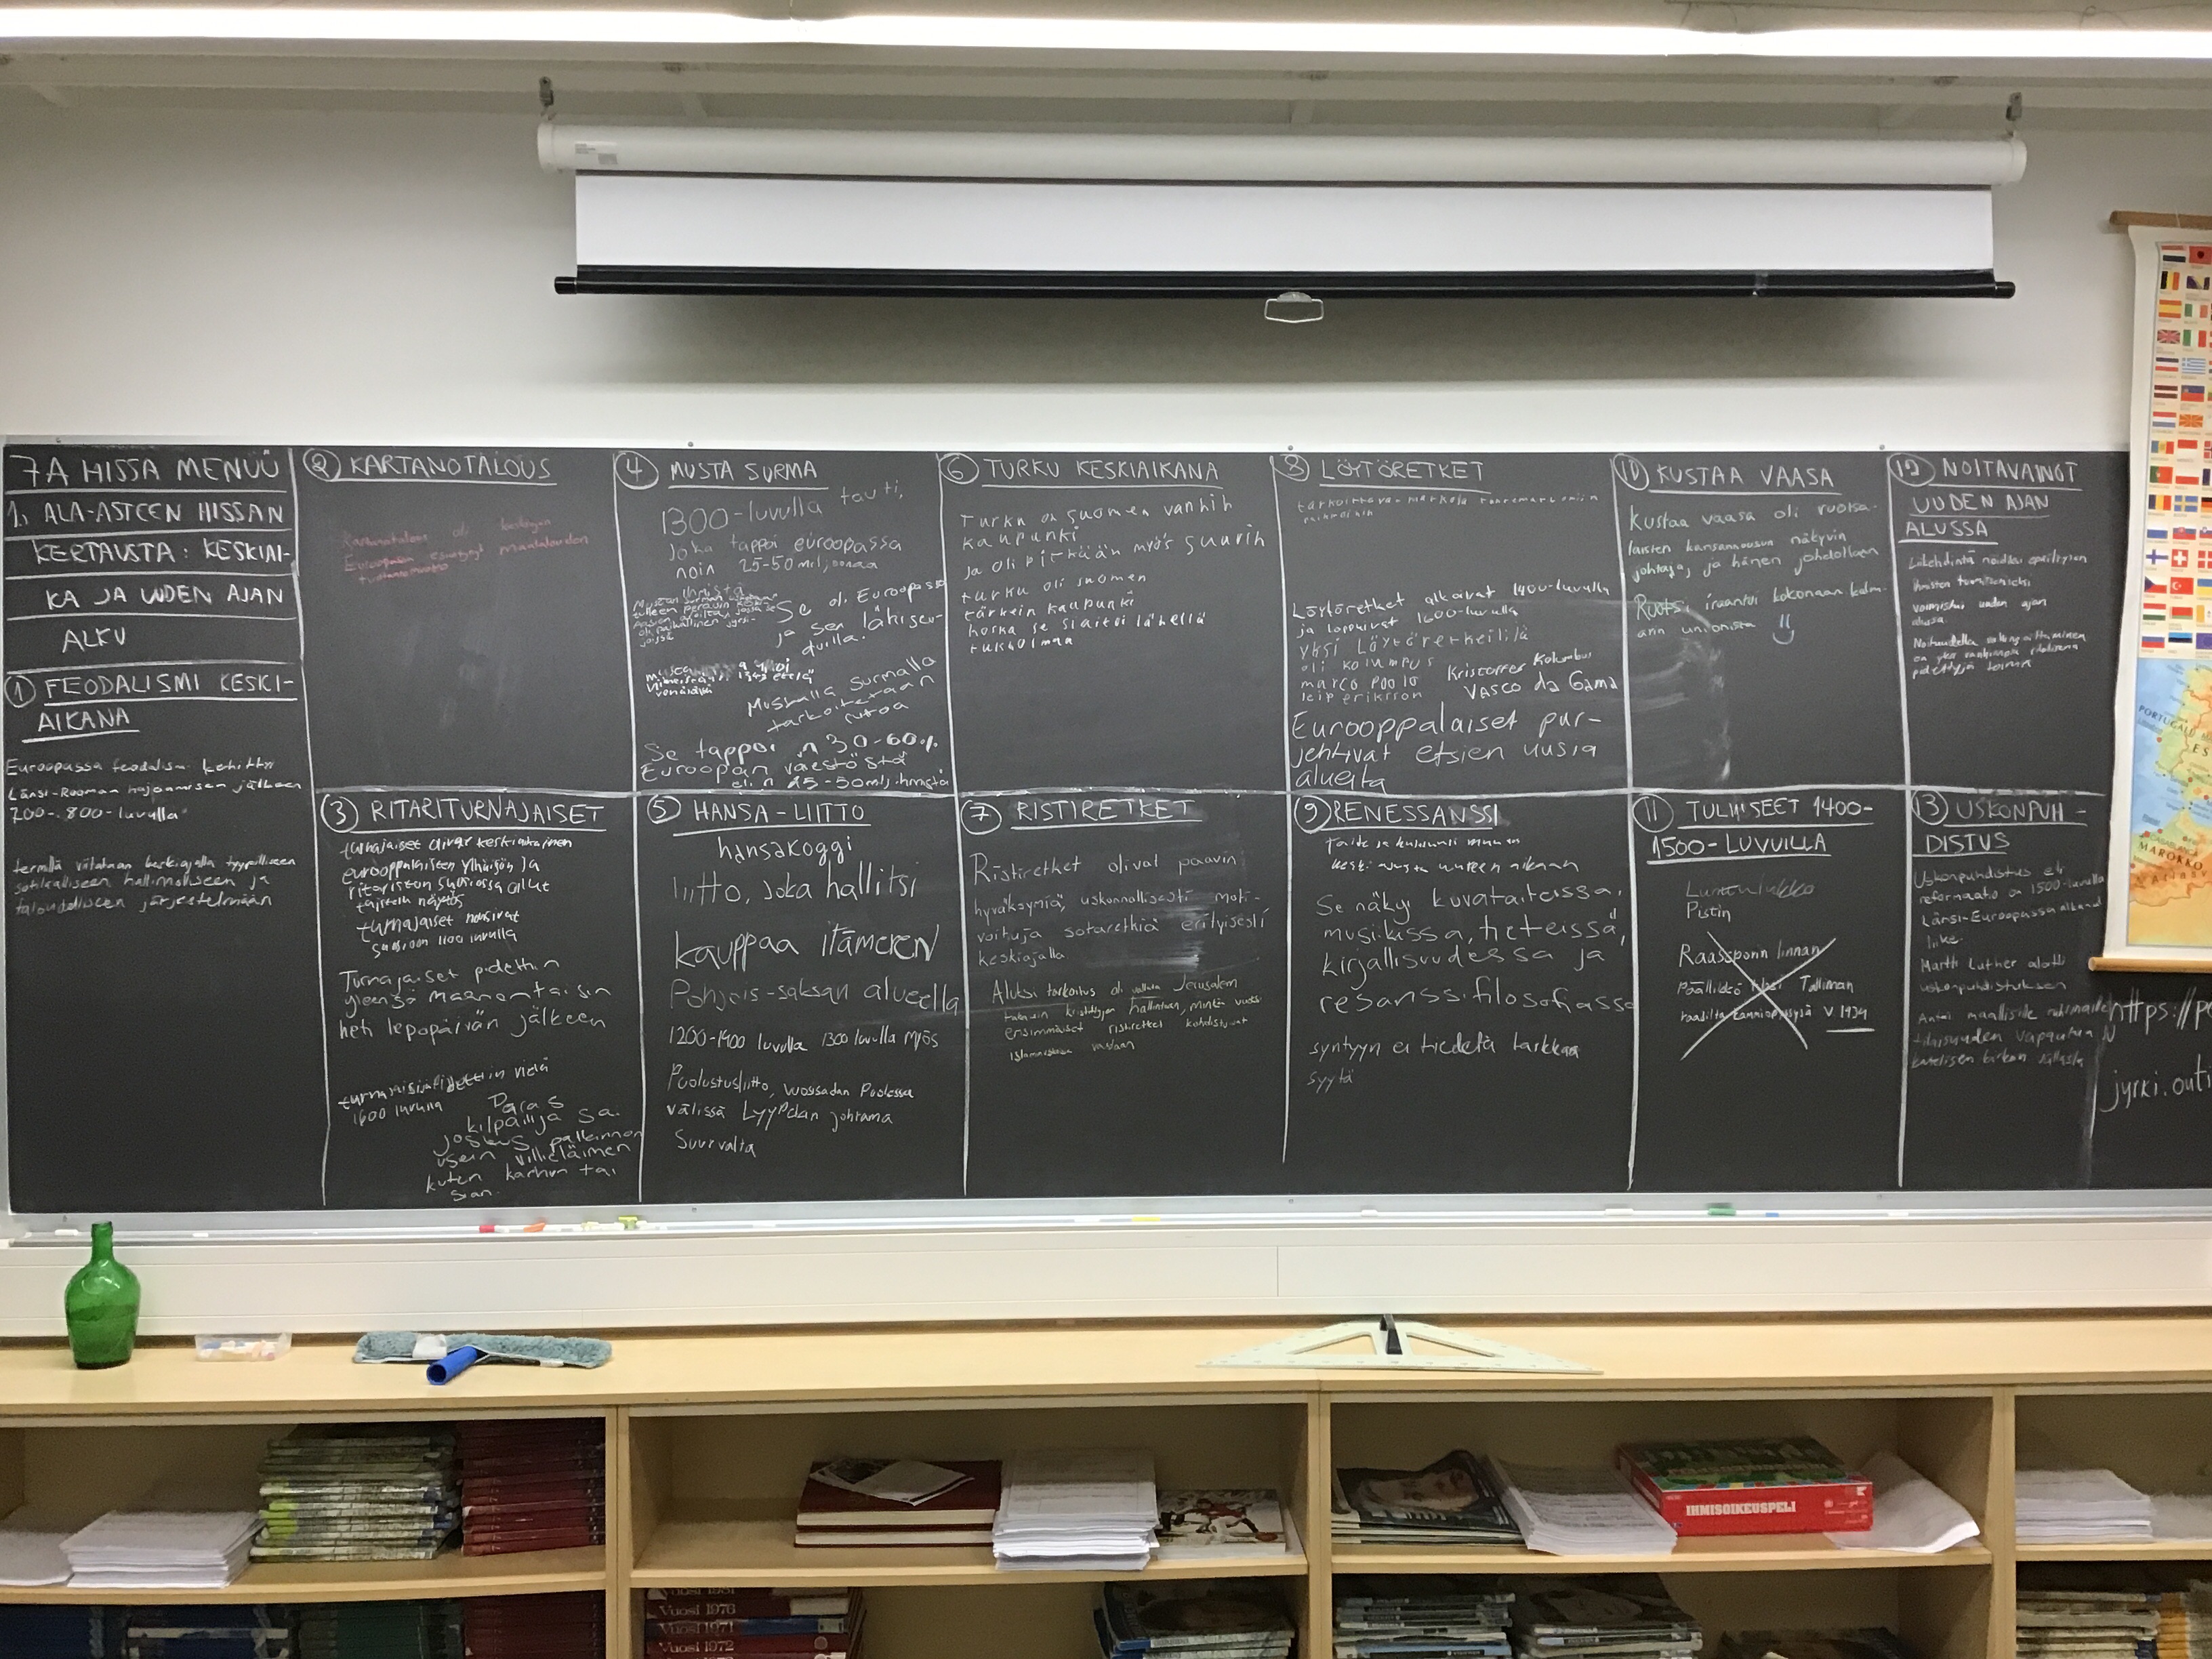 7A HISSA MENUÜ
1. ALA-ASTEEN HISSAN
KERTAUSTA: KESKIAI-
KA JA UUDEN AJAN
ALKU
① FEODALISMI KESKI-
AIKANA
Euroopassa feodalismi kehittyi
Länsi-Rooman hajoamisen jälkeen
700-800-luvulla
termillä viitataan keskiajalla tyypilliseen
sotilaalliseen hallinnolliseen ja
taloudelliseen järjestelmään
② KARTANOTALOUS
Kartanotalous oli keskiajan
Euroopassa esiintynyt maatalouden
tuotantomuoto
③ RITARITURNAJAISET
turnajaiset olivat keskiaikainen
eurooppalaisten ylhäisön ja
ritariston suosiossa ollut
taistelu näytös
turnajaiset nousivat
suosioon 1100 luvulla
Turnajaiset pidettiin
yleensä maanantaisin
heti lepopäivän jälkeen
turnajaisia pidettiin vielä
1600 luvulla
Paras
kilpailija sai
joskus palkinnon
usein villieläimen
kuten karhun tai
sian.
④ MUSTA SURMA
1300-luvulla tauti,
Joka tappoi euroopassa
noin 25-50 milj,
ihmistä
Se oli Euroopassa
ja sen lähiseu-
duilla.
Mustalla surmalla
tarkoitetaan
ruttoa
Se tappoi n 30-60%
Euroopan väestöstä
eli n 25-50 milj ihmistä
⑤ HANSA-LIITTO
hansakoggi
liitto, joka hallitsi
kauppaa itämeren
Pohjois-saksan alueella
1200-1400 luvulla 1300 luvulla myös
Puolustusliitto, Puolessa
välissä Lyypekin johtama
Suurvalta
⑥ TURKU KESKIAIKANA
Turku on suomen vanhin
kaupunki
ja oli pitkään myös suurin
turku oli suomen
tärkein kaupunki
koska se sijaitsi lähellä
tukholmaa
⑦ RISTIRETKET
Ristiretket olivat paavin
hyväksymiä, uskonnollisesti moti-
voituja sotaretkiä erityisesti
keskiajalla
Aluksi tarkoitus oli vallata Jerusalem
takaisin kristittyjen hallintaan, minkä vuoksi
ensimmäiset ristiretket kohdistuivat
islaminuskoa vastaan
⑧ LÖYTÖRETKET
Löytöretket alkoivat 1400-luvulla
ja loppuivat 1600-luvulla
yksi Löytöretkeilijä
oli kolumpus
marco poolo
leip eriksson
Kristoffer Kolumbus
VASCO da Gama
Eurooppalaiset pur-
jehtivat etsien uusia
alueita
⑨ RENESSANSSI
Taide ja kulttuuri muutos
keski ajasta uuteen aikaan
Se näkyi kuvataiteissa,
musiikissa, tieteissä,
kirjallisuudessa ja
resanssifilosofiassa
syntyyn ei tiedetä tarkkaa
syytä
⑩ KUSTAA VAASA
Kustaa vaasa oli ruotsa-
laisten kansannousun näkyvin
johtaja, ja hänen johdollaan
Ruotsi iraantui kokonaan kalm-
arin unionista
⑪ TULIASEET 1400-
1500-LUVUILLA
Luntunlukko
Pistin
Raaseporin linnan
päällikkö Tallinnan
raadilta
⑫ NOITAVAINOT
UUDEN AJAN
ALUSSA
Liikehdintä noidiksi epäiltyjen
ihmisten tuomitsemiseksi
voimistui uuden ajan
alussa
⑬ USKONPUH-
DISTUS
Uskonpuhdistus eli
reformaatio on 1500-luvulla
Länsi-Euroopassa alkanut
liike.
Martti Luther aloitti
uskonpuhdistuksen
Antoi maallisille ruhtinaille
tilaisuuden vapautua
katolisen kirkon vallasta
https://p
jyrki.outi
PORTUGAL
MAROKKO
IHMISOIKEUSPELI
Vuosi 1981
Vuosi 1976
Vuosi 1971
Vuosi 1972